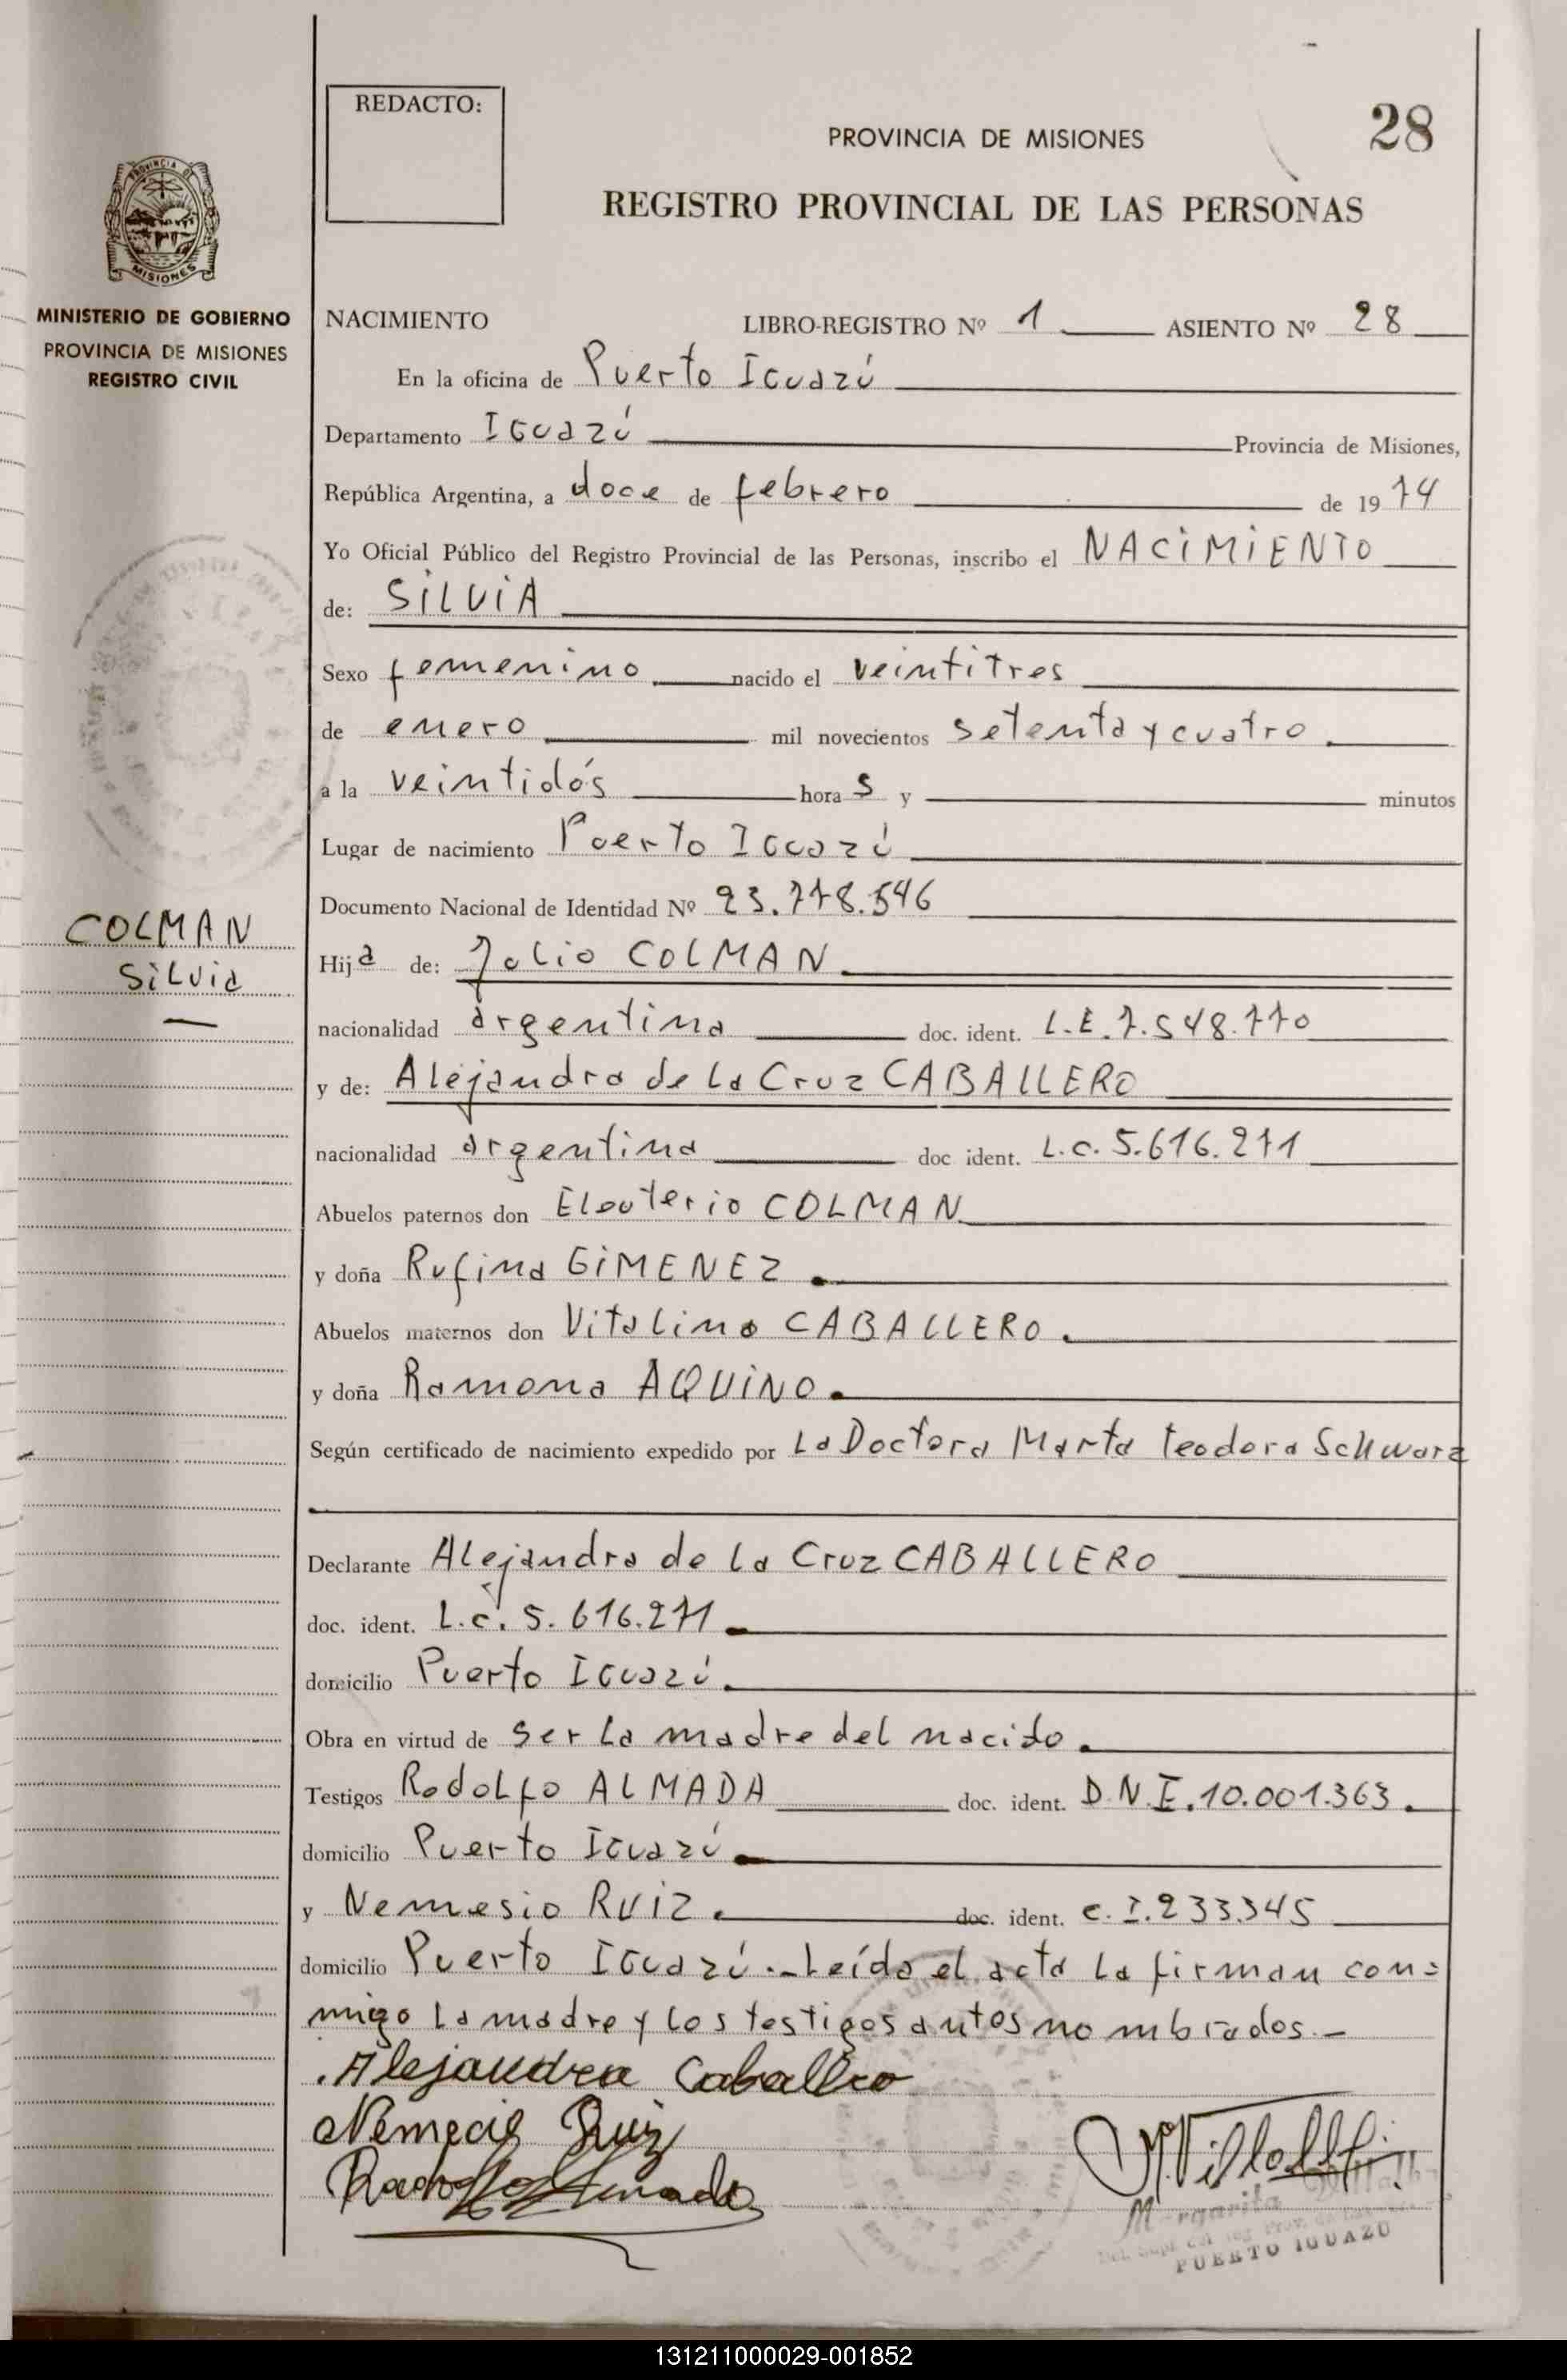 REDACTO:
28
PROVINCIA DE MISIONES
REGISTRO PROVINCIAL DE LAS PERSONAS
PROVINCIA DE
MISIONES
MINISTERIO DE GOBIERNO
PROVINCIA DE MISIONES
REGISTRO CIVIL
COLMAN
Silvia
NACIMIENTO LIBRO-REGISTRO Nº 1 ASIENTO Nº 28
En la oficina de Puerto Iguazú
Departamento Iguazú Provincia de Misiones,
República Argentina, a doce de febrero de 1974
Yo Oficial Público del Registro Provincial de las Personas, inscribo el NACIMIENTO
de: SILVIA
Sexo femenino nacido el veintitres
de enero mil novecientos setenta y cuatro
a la veintidós horas y minutos
Lugar de nacimiento Puerto Iguazú
Documento Nacional de Identidad Nº 23.778.546
Hija de: Julio COLMAN
nacionalidad argentina doc. ident. L.E. 7.548.770
y de: Alejandra de la Cruz CABALLERO
nacionalidad argentina doc ident. L.C. 5.616.271
Abuelos paternos don Eleuterio COLMAN
y doña Rufina GIMENEZ.
Abuelos maternos don Vitalino CABALLERO.
y doña Ramona AQUINO.
Según certificado de nacimiento expedido por La Doctora Marta Teodora Schwarz
Declarante Alejandra de la Cruz CABALLERO
doc. ident. L.C. 5.616.271.
domicilio Puerto Iguazú.
Obra en virtud de ser la madre del nacido.
Testigos Rodolfo ALMADA doc. ident. D.N.I. 10.001.363.
domicilio Puerto Iguazú.
y Nemesio RUIZ. doc. ident. C.I. 233.345
domicilio Puerto Iguazú.- Leída el acta la firman con=
migo la madre y los testigos antes nombrados.-
Alejandra Caballero
Nemecio Ruiz
Rodolfo Almada
Margarita
PUERTO IGUAZU
131211000029-001852